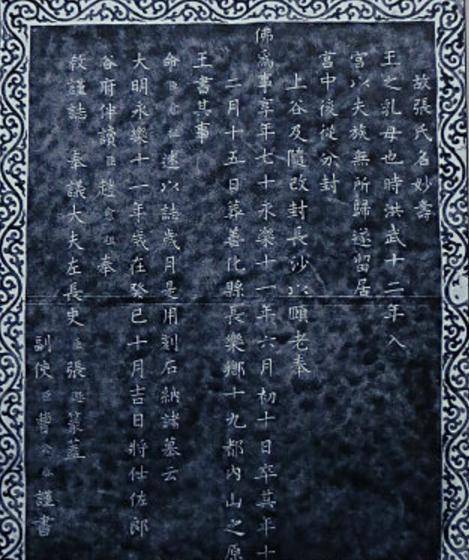 故張氏名妙壽
王之乳母也時洪武十二年入
宮以夫族無所歸遂留居
宮中後從分封
上谷及隨改封長沙以頤老奉
佛為事享年七十永樂十一年六月初十日卒其年十
二月十五日葬善化縣長樂鄉十九都內山之原
王書其事
命臣 述以誌歲月是用刻石納諸墓云
大明永樂十一年歲在癸巳十月吉日將仕佐郎
谷府伴讀臣趙 奉
敎謹誌 奉議大夫左長史臣張 篆蓋
副使臣 謹書